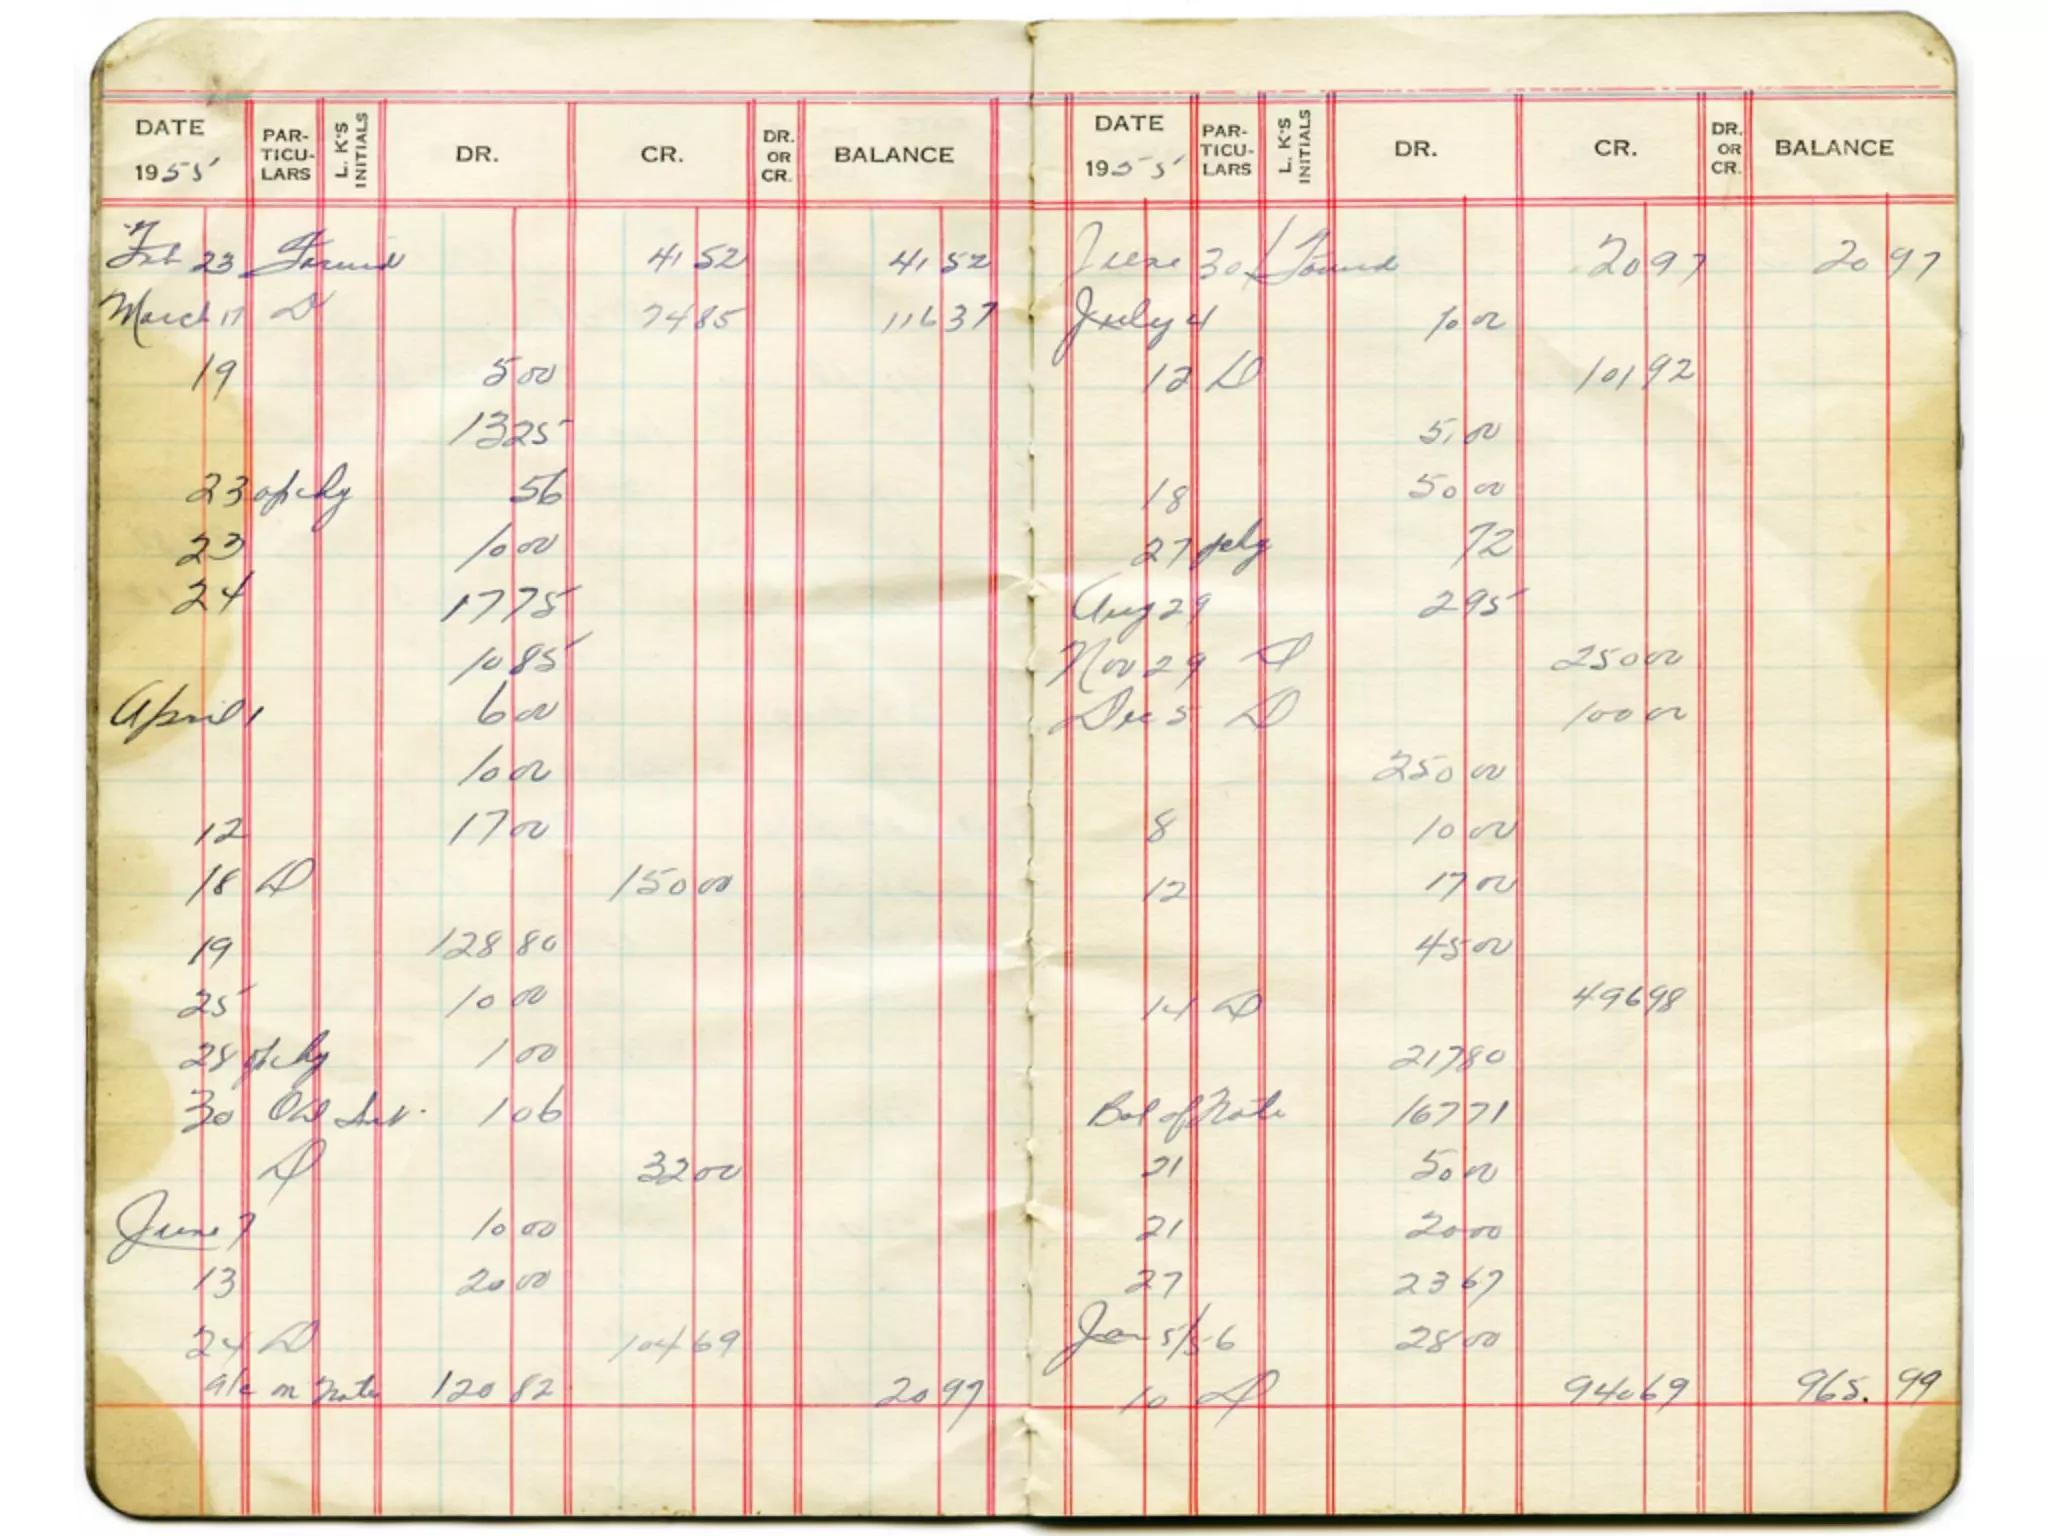 DATE 1955 PAR-TICU-LARS L. K'S INITIALS DR. CR. DR. OR CR. BALANCE
Feb 23 Forward 41 52 41 52
March 17 D 74 85 116 37
19 5 00
13 25
23 opchg 56
23 10 00
24 17 75
10 85
April 1 6 00
10 00
12 17 00
18 D 150 00
19 128 80
25 10 00
28 opchg 1 00
30 Old 1 06
D 32 00
June 7 10 00
13 20 00
24 D 104 69
a/c on Note 120 82 20 97
DATE 1955 PAR-TICU-LARS L. K'S INITIALS DR. CR. DR. OR CR. BALANCE
June 30 Forward 20 97 20 97
July 4 10 00
12 D 101 92
5,00
18 50 00
27 pchg 72
Aug 29 2 95
Nov 29 D 250 00
Dec 5 D 100 00
250 00
8 10 00
12 17 00
45 00
14 D 496 98
217 80
Bal of Note 167 71
21 50 00
21 20 00
27 23 67
Jan 5/56 28 00
10 D 940 69 965. 99